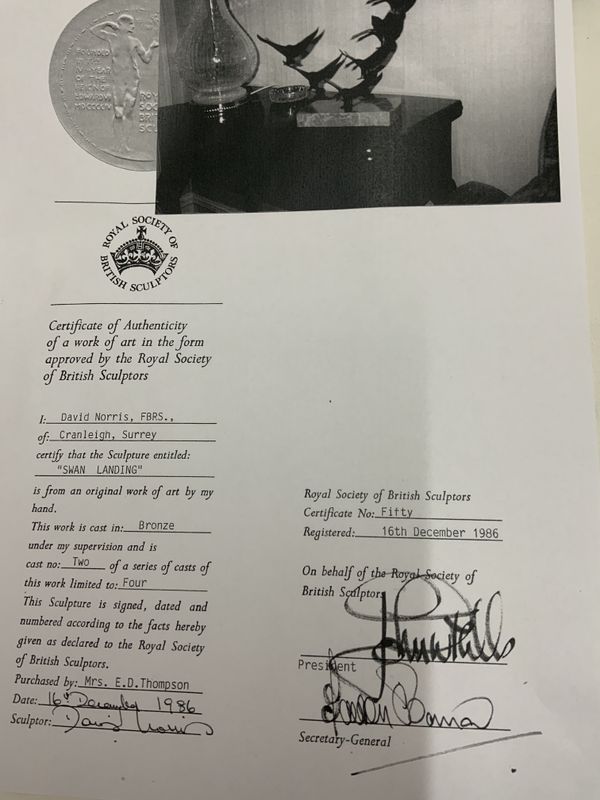 FOUNDED
IN THE
IV YEAR
OF THE
REIGN OF
EDWARD VII
MDCCCCIV
ROY
SOC
BRIT
SCU
ROYAL SOCIETY OF
BRITISH SCULPTORS
Certificate of Authenticity
of a work of art in the form
approved by the Royal Society
of British Sculptors
I: David Norris, FBRS.,
of: Cranleigh, Surrey
certify that the Sculpture entitled:
"SWAN LANDING"
is from an original work of art by my
hand.
This work is cast in: Bronze
under my supervision and is
cast no: Two of a series of casts of
this work limited to: Four
This Sculpture is signed, dated and
numbered according to the facts hereby
given as declared to the Royal Society
of British Sculptors.
Purchased by: Mrs. E.D.Thompson
Date: 16th December 1986
Sculptor: David Norris
Royal Society of British Sculptors
Certificate No: Fifty
Registered: 16th December 1986
On behalf of the Royal Society of
British Sculptors
President
Secretary-General